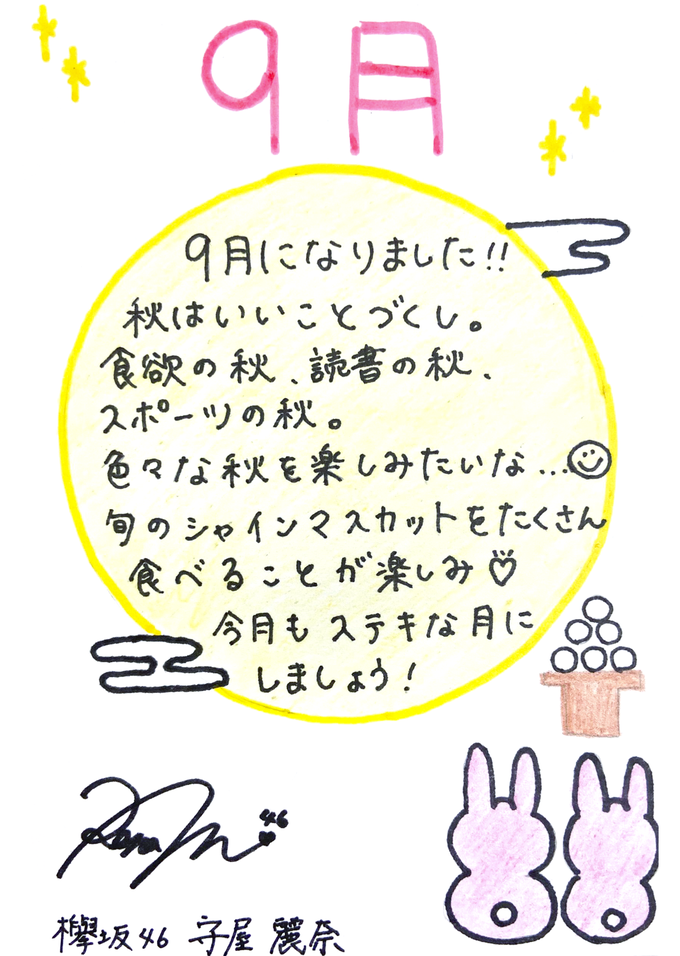 9月
9月になりました!!
秋はいいことづくし。
食欲の秋、読書の秋、
スポーツの秋。
色々な秋を楽しみたいな...
旬のシャインマスカットをたくさん
食べることが楽しみ♡
今月もステキな月に
しましょう!
46
欅坂46 守屋 麗奈